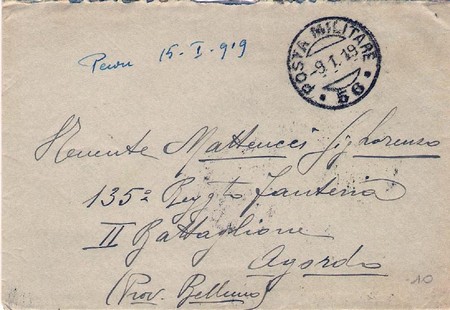 15-I-919
POSTA MILITARE
-9.1.19
56
Tenente Matteucci Sig Lorenzo
135° Reggto Fanteria
II Battaglione
Agordo
(Prov. Belluno)
10